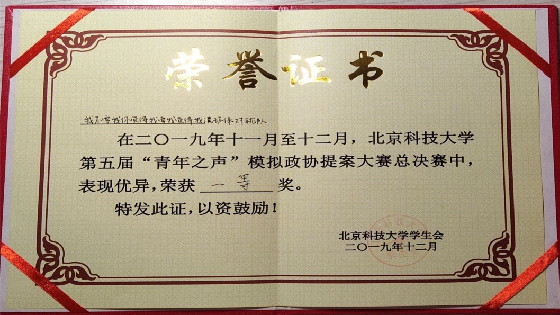 荣誉证书
在二〇一九年十一月至十二月，北京科技大学
第五届“青年之声”模拟政协提案大赛总决赛中，
表现优异，荣获 一等 奖。
特发此证，以资鼓励！
北京科技大学学生会
二〇一九年十二月